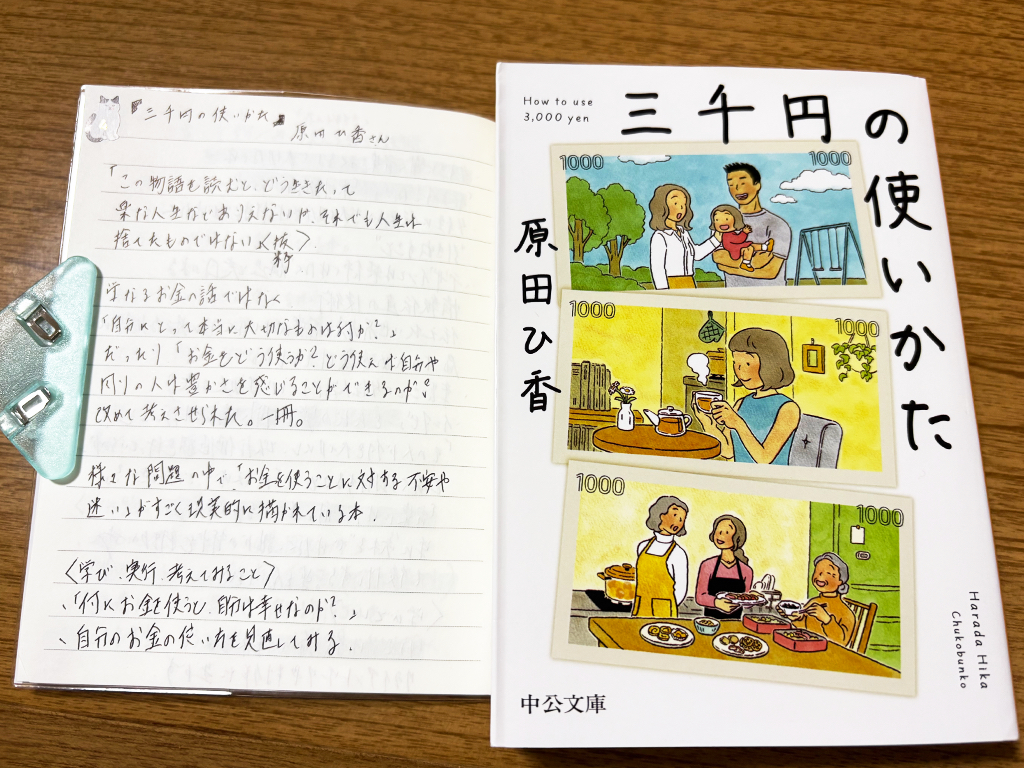 『三千円の使いかた』
原田ひ香さん
「この物語を読むと、どう生きたって
楽な人生などありえないが、それでも人生は
捨てたものではない」〈抜
粋〉
単なるお金の話ではなく
「自分にとって本当に大切なものは何か?」
だったり「お金をどう使うか?どう使えば自分や
周りの人は豊かさを感じることができるのか?
改めて考えさせられた。一冊。
様々な問題の中で「お金を使うことに対する不安や
迷い」がすごく現実的に描かれている本.
〈学び、実行、考えてみること〉
、「何にお金を使うと、自分は幸せなのか?」
、自分のお金の使い方を見直してみる.
How to use
3,000 yen
三千円の使いかた
原田ひ香
1000
1000
1000
1000
1000
1000
Harada Hika
Chukobunko
中公文庫